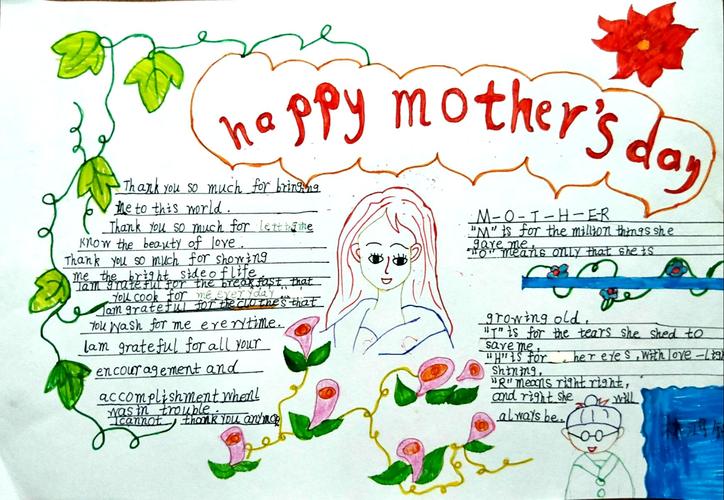 happy mother's day
Thank you so much for bringing
me to this world.
Thank you so much for letting me
know the beauty of love.
Thank you so much for showing
me the bright side of life
Iam grateful for the breakfast that
you cook for me everyday
Iam grateful for the clothes that
you wash for me everytime.
Iam grateful for all your
encouragement and
accomplishment when I
was in trouble
I cannot thank you
M-O-T-H-E-R
"M" is for the million things she
gave me.
"O" means only that she is
growing old.
"T" is for the tears she shed to
save me.
"H" is for her eyes, with love-light
shining.
"R" means right right,
and right she will
always be.